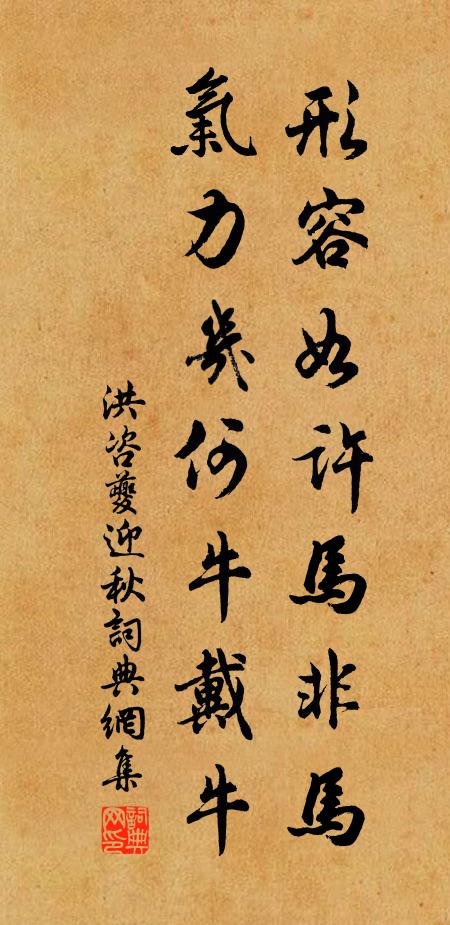 形容如許馬非馬
氣力幾何牛戴牛
洪咨夔迎秋詞典網集
詞典网印